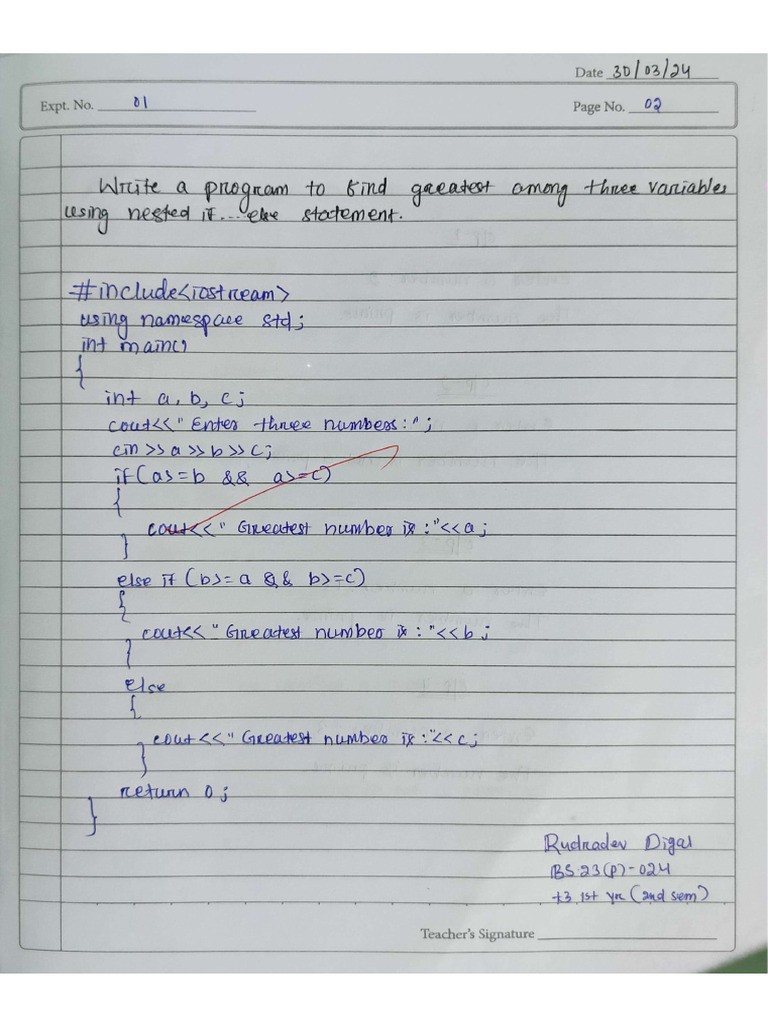 Date 30/03/24
Expt. No. 01
Page No. 02
Write a program to find greatest among three variables
using nested if...else statement.
#include<iostream>
using namespace std;
int main()
{
int a, b, c;
cout<<"Enter three numbers:";
cin>>a>>b>>c;
if(a>=b && a>=c)
{
cout<<"Greatest number is:"<<a;
}
else if(b>=a && b>=c)
{
cout<<"Greatest number is:"<<b;
}
else
{
cout<<"Greatest number is:"<<c;
}
return 0;
}
Rudradev Digal
BS23(P)-024
+3 1st yr (2nd sem)
Teacher's Signature